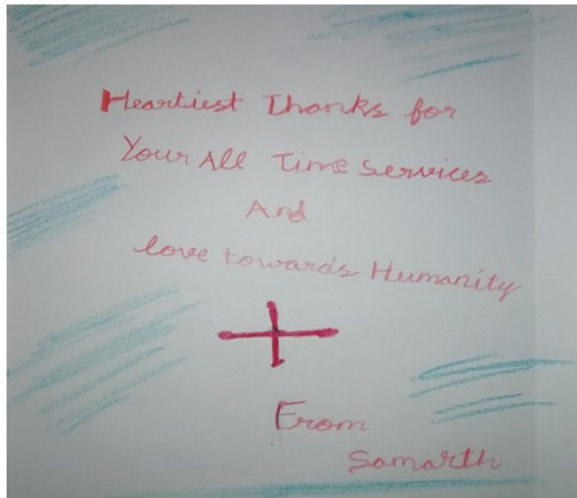 Heartiest Thanks for
Your All Time Services
And
love towards Humanity
From
Samarth